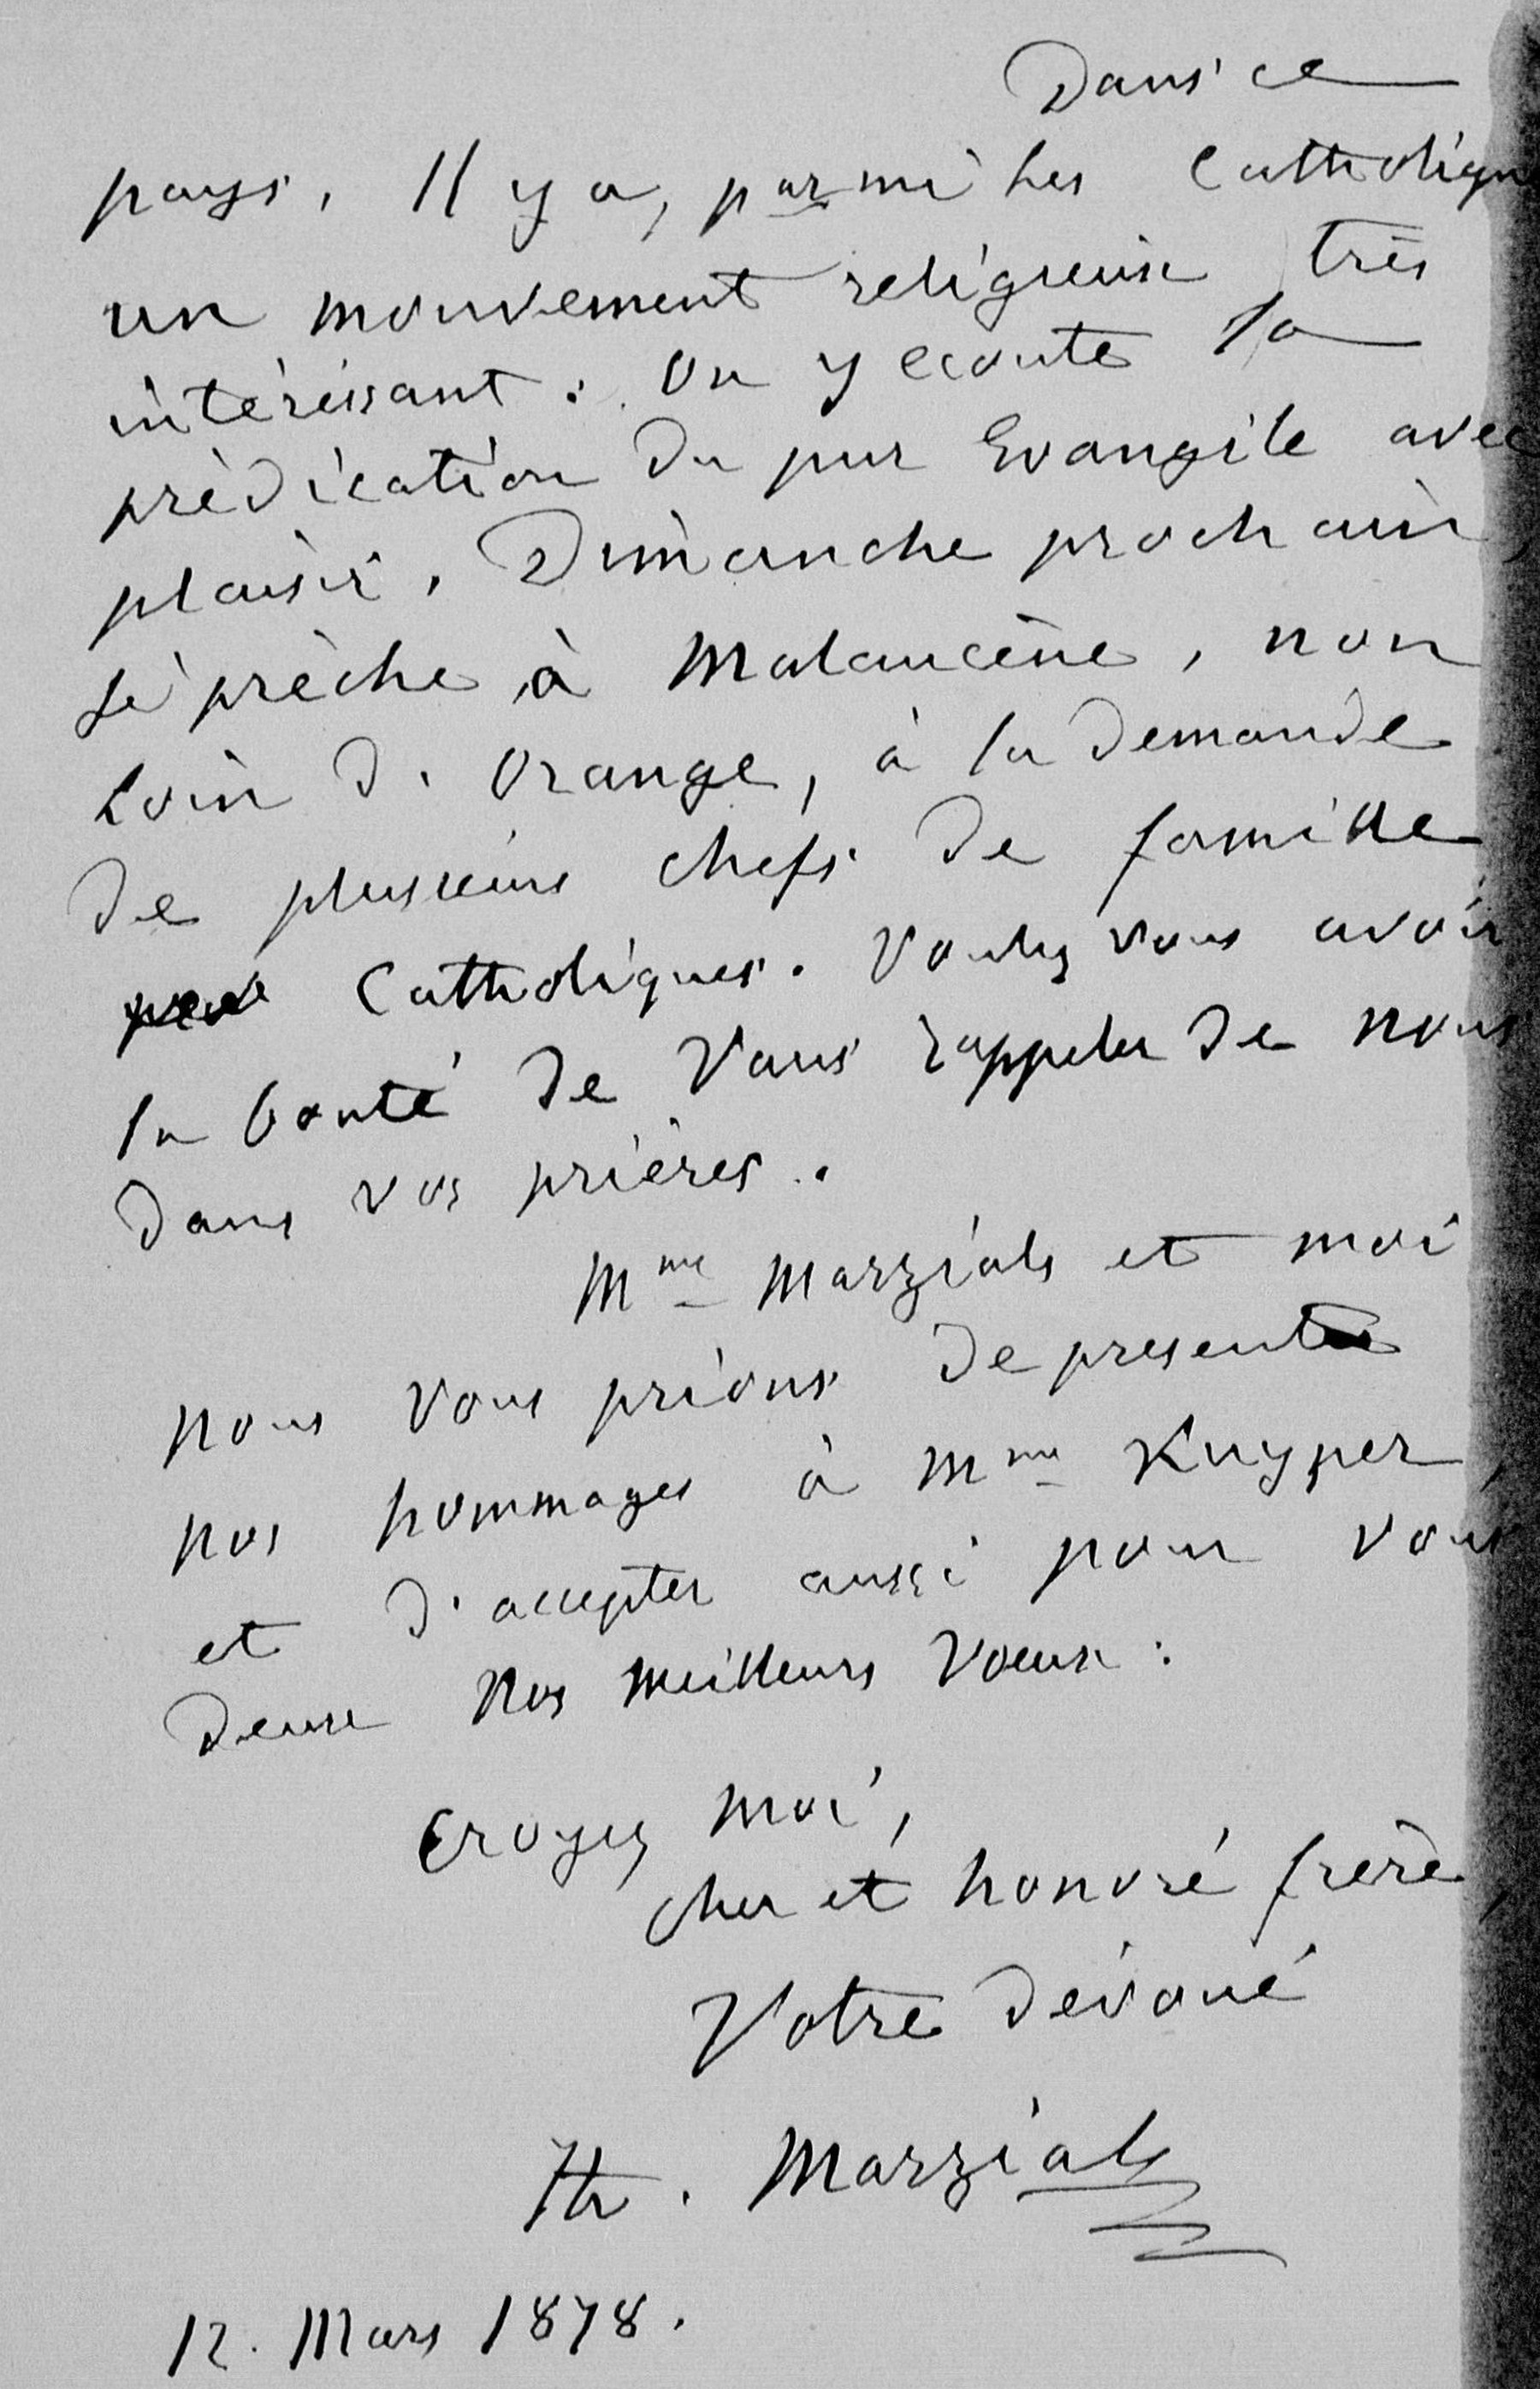 Dans ce
pays, Il y a, parmi les Catholiqu
un mouvement religieux très
intéressant : On y écoute la
prédication du pur Evangile avec
plaisir, Dimanche prochain,
je prêche à Malaucène, non
loin d'Orange, à la demande
de plusieurs chefs de famille
Catholiques. Voulez vous avoir
la bonté de Vous rappeler de nous
dans vos prières.
Mme Marzials et moi
nous vous prions de presenter
nos hommages à Mme Kuyper,
et d'accepter aussi pour vous
deux nos meilleurs Voeux :
Croyez moi,
cher et honoré frère,
Votre dévoué
Th. Marzials
12. Mars 1878.